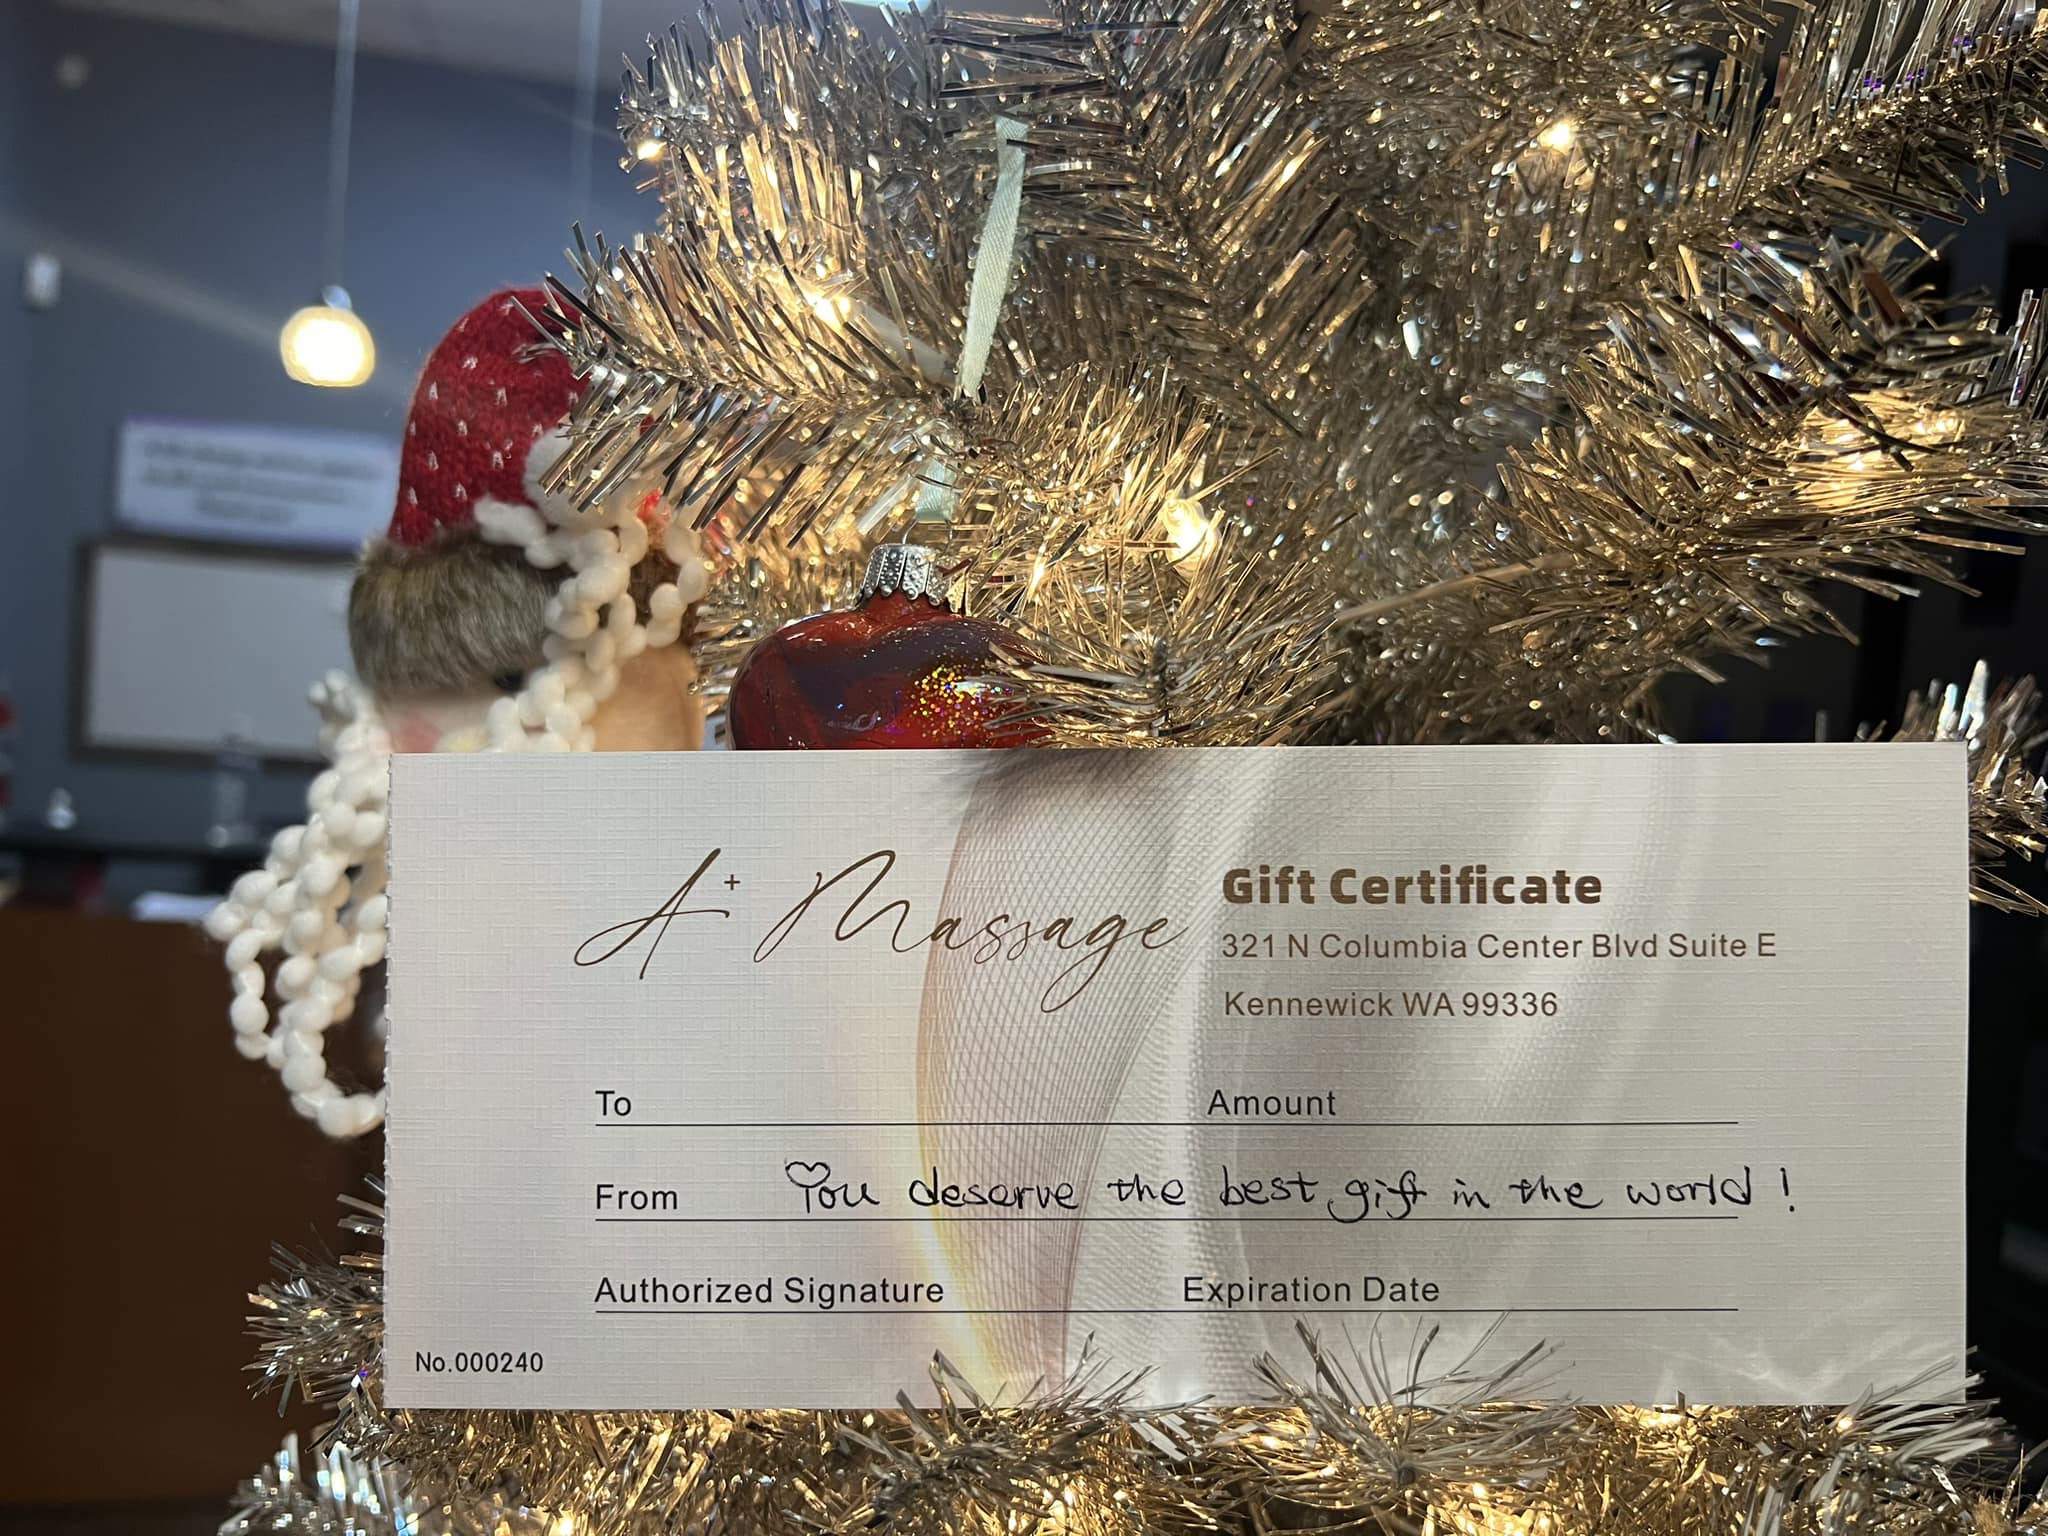 A+ Massage
Gift Certificate
321 N Columbia Center Blvd Suite E
Kennewick WA 99336
To
Amount
From You deserve the best gift in the world!
Authorized Signature
Expiration Date
No.000240